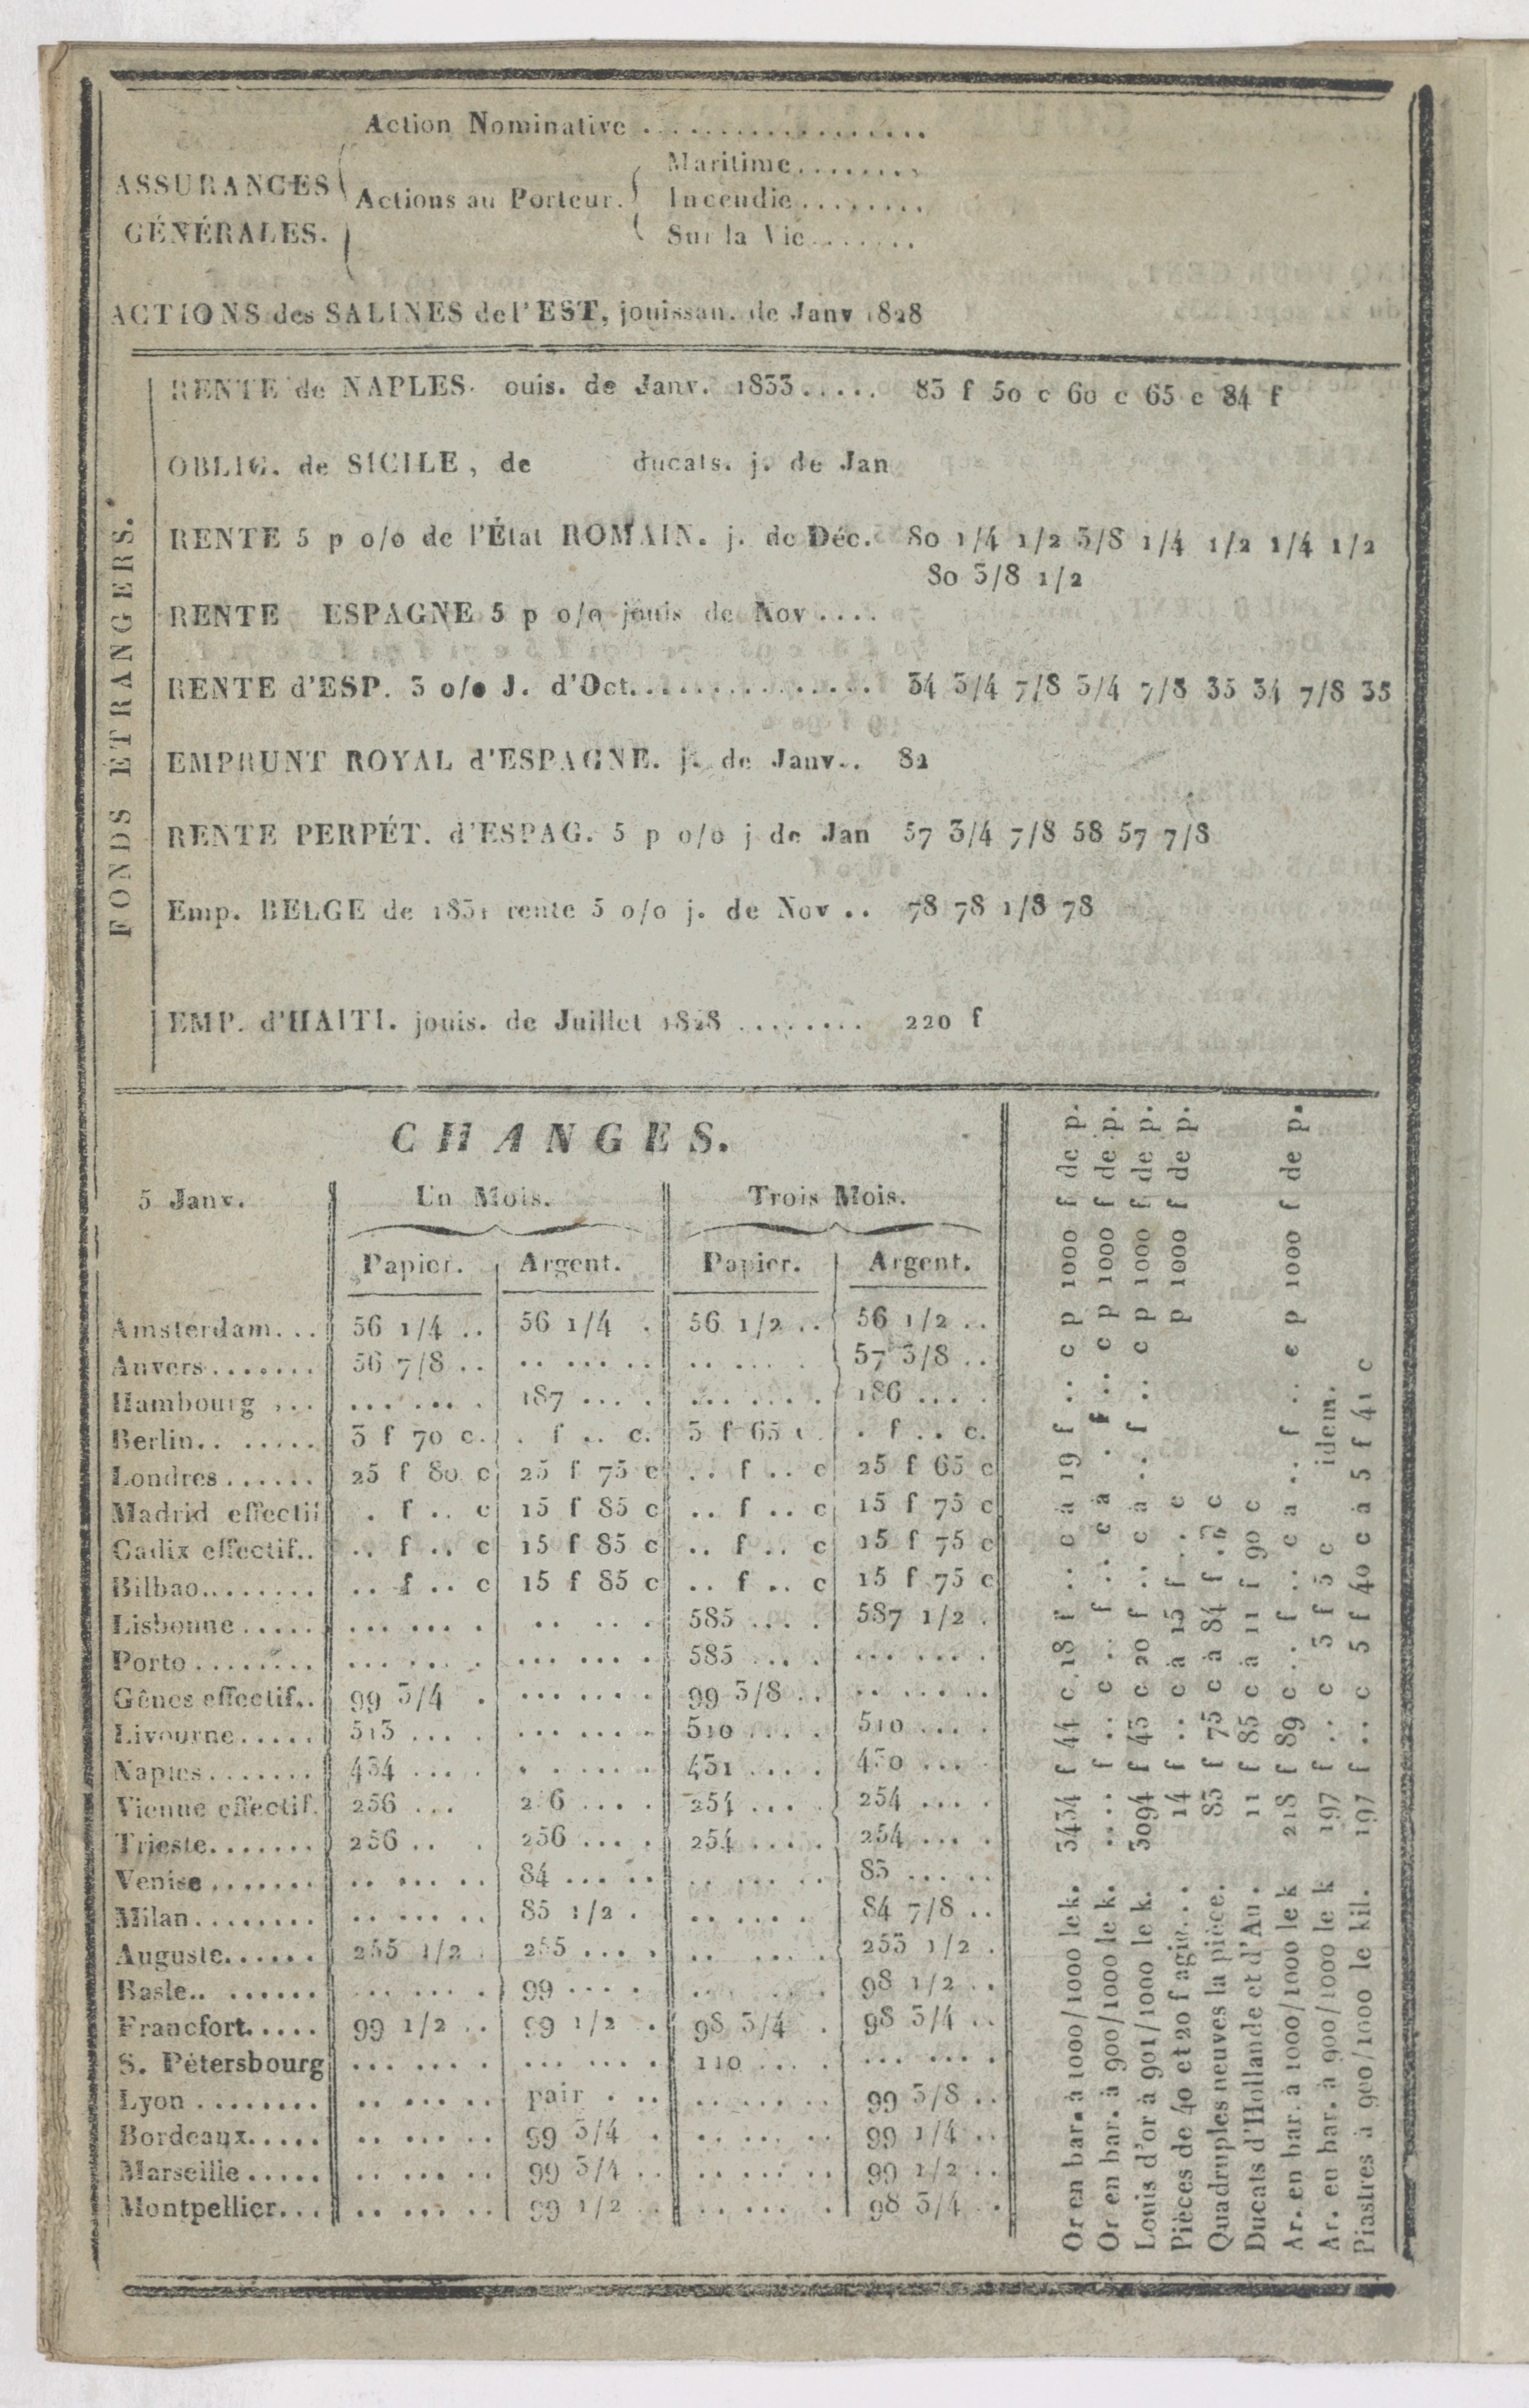 Action Nominative ..................
ASSURANCES
GÉNÉRALES.
Actions au Porteur.
Maritime........
Incendie........
Sur la Vie.......
ACTIONS des SALINES de l'EST, jouissan. de Janv 1828
FONDS ÉTRANGERS.
RENTE de NAPLES. ouis. de Janv. 1833..... 83 f 50 c 60 c 65 c 84 f
OBLIG. de SICILE, de ducats. j. de Jan
RENTE 5 p o/o de l'État ROMAIN. j. de Déc. 80 1/4 1/2 3/8 1/4 1/2 1/4 1/2
80 3/8 1/2
RENTE ESPAGNE 5 p o/o jouis de Nov ....
RENTE d'ESP. 3 o/o J. d'Oct............... 34 3/4 7/8 3/4 7/8 35 34 7/8 35
EMPRUNT ROYAL d'ESPAGNE. j. de Janv.. 82
RENTE PERPÉT. d'ESPAG. 5 p o/o j de Jan 57 3/4 7/8 58 57 7/8
Emp. BELGE de 1831 rente 5 o/o j. de Nov .. 78 78 1/8 78
EMP. d'HAITI. jouis. de Juillet 1828 ........ 220 f
CHANGES.
5 Janv. Un Mois. Trois Mois.
Papier. Argent. Papier. Argent.
Amsterdam... 56 1/4 .. 56 1/4 . 56 1/2 .. 56 1/2 ..
Anvers....... 56 7/8 .. .. ... .. .. ... . 57 3/8 ..
Hambourg ... ... ... . 187 ... . ... ... . 186 ... .
Berlin.. ..... 3 f 70 c. . f .. c. 3 f 65 c. . f .. c.
Londres...... 25 f 80 c 25 f 75 c .. f .. c 25 f 65 c
Madrid effectif . f .. c 15 f 85 c .. f .. c 15 f 75 c
Cadix effectif.. .. f .. c 15 f 85 c .. f .. c 15 f 75 c
Bilbao........ .. f .. c 15 f 85 c .. f .. c 15 f 75 c
Lisbonne..... ... ... . .. .. . 585 ... . 587 1/2 .
Porto........ ... ... . ... ... . 585 ... . ... ... .
Gênes effectif.. 99 3/4 . ... ... . 99 3/8 .. .. ... ..
Livourne..... 513 ... . ... ... . 510 ... . 510 ... .
Naples....... 434 ... . . ... . 431 ... . 430 ... .
Vienne effectif. 256 ... 256 ... . 254 ... . 254 ... .
Trieste....... 256 .. . 256 ... . 254 ... . 254 ... .
Venise....... .. ... .. 84 ... .. .. ... .. 83 ... ..
Milan........ .. ... .. 85 1/2 . .. ... . 84 7/8 ..
Auguste...... 255 1/2 . 255 ... . .. ... . 253 1/2 .
Basle.. ...... ... ... . 99 ... . ... ... . 98 1/2 ..
Francfort..... 99 1/2 .. 99 1/2 . 98 3/4 . 98 3/4 ..
S. Pétersbourg ... ... . ... ... . 110 ... . ... ... .
Lyon ........ .. ... .. pair . .. .. ... .. 99 3/8 ..
Bordeaux..... .. ... .. 99 3/4 . .. ... .. 99 1/4 ..
Marseille..... .. ... .. 99 3/4 .. .. ... .. 99 1/2 ..
Montpellier... .. ... .. 99 1/2 .. .. ... . 98 3/4 ..
Or en bar. à 1000/1000 le k. 3434 f 44 c 18 f .. c à 19 f .. c p 1000 f de p.
Or en bar. à 900/1000 le k. .... f .. c .. f .. c à . f .. c p 1000 f de p.
Louis d'or à 901/1000 le k. 3094 f 43 c 20 f .. c à .. f .. c p 1000 f de p.
Pièces de 40 et 20 f agio... 14 f .. c à 15 f .. c p 1000 f de p.
Quadruples neuves la pièce. 83 f 75 c à 84 f .. c
Ducats d'Hollande et d'Au. 11 f 85 c à 11 f 90 c
Ar. en bar. à 1000/1000 le k 218 f 89 c .. f .. c à .. f .. c p 1000 f de p.
Ar. en bar. à 900/1000 le k 197 f .. c 5 f 5 c idem.
Piastres à 900/1000 le kil. 197 f .. c 5 f 40 c à 5 f 41 c